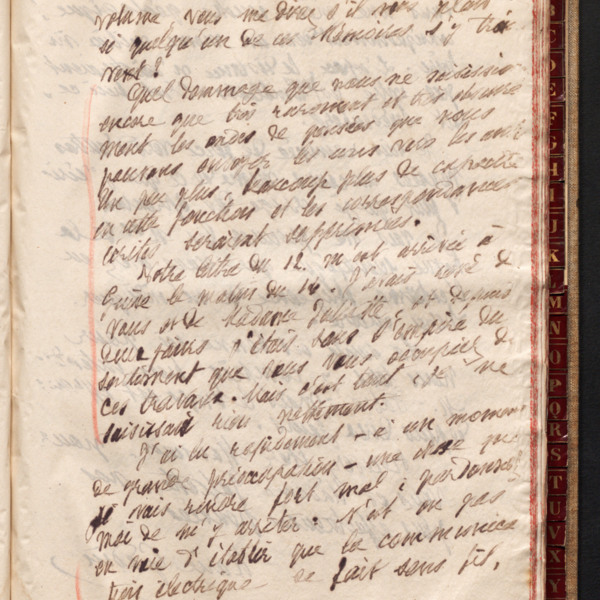 volume, vous me direz s'il vous plait
si quelqu'un de ces Mémoires s'y trou
vent!
Quel dommage que nous ne saisissio
encore que très rarement et très obscure
ment les ondes de pensées que nous
pouvons envoyer les uns vers les autr
Un peu plus, beaucoup plus de capacité
en cette fonction et les correspondances
écrites seraient supprimées.
Votre lettre du 12 m'est arrivée à
le matin du 14. J'avais rêvé de
vous et de Madame et depuis
deux jours j'étais sous l'empire du
sentiment que vous vous occupiez de
ces travaux. Mais c'est tout : je ne
saisissais rien nettement.
J'ai eu rapidement - à un moment
de grande préoccupation - une idée que
je vais rendre fort mal : pardonnez
moi de m'y arrêter. N'est on pas
en voie d'établir que la communica
tion électrique se fait sans fil,
B
C
D
E
F
G
H
I
J
K
L
M
N
O
P
Q
R
S
T
U
V
X
Y